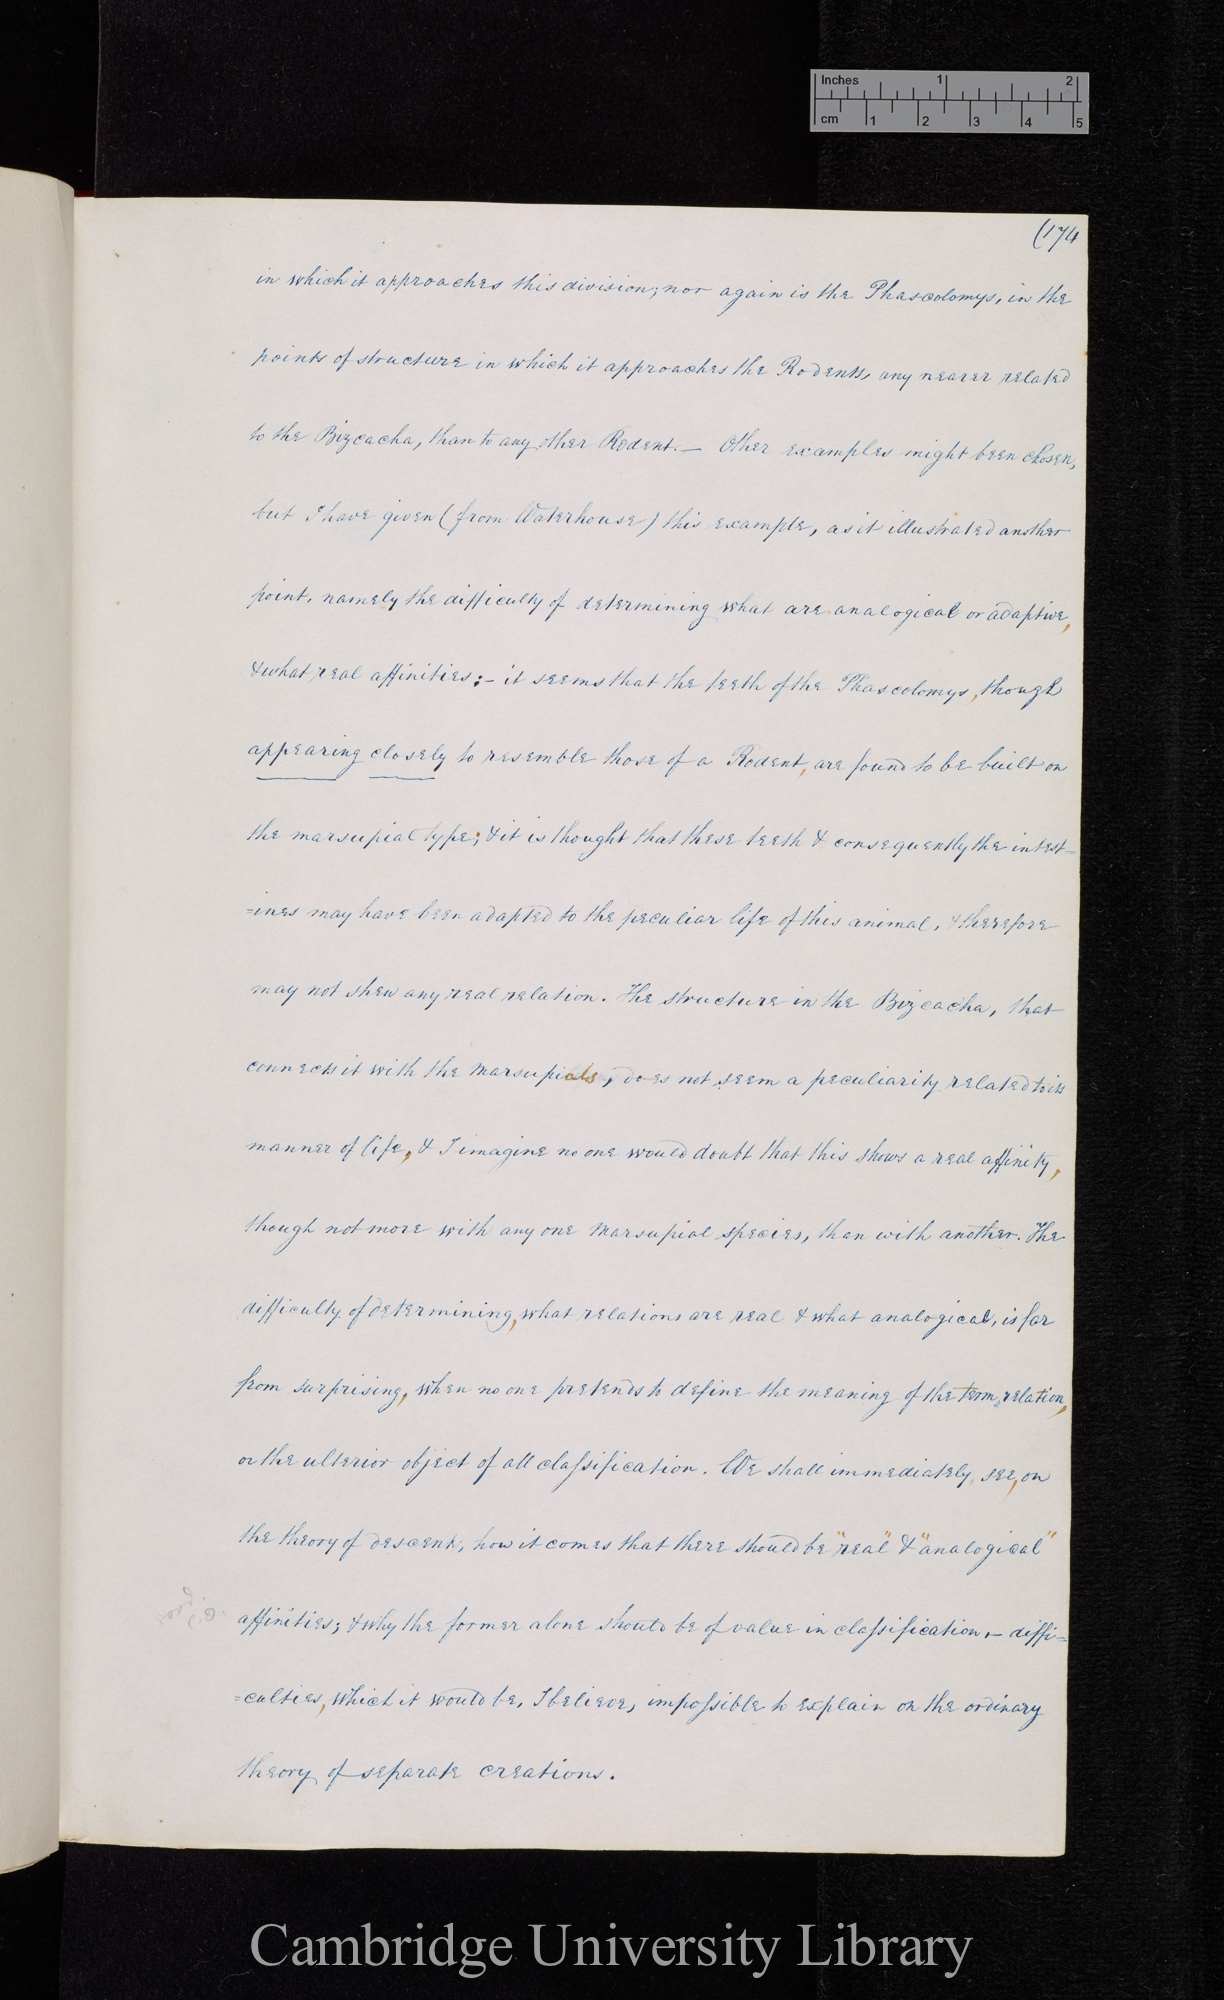 Inches 1 2
cm 1 2 3 4 5
(174
in which it approaches this division; nor again is the Phascolomys, in the
points of structure in which it approaches the Rodents, any nearer related
to the Bizcacha, than to any other Rodent.— Other examples might been chosen,
but I have given (from Waterhouse) this example, as it illustrated another
point, namely the difficulty of determining what are analogical or adaptive,
& what real affinities:– it seems that the teeth of the Phascolomys, though
appearing closely to resemble those of a Rodent, are found to be built on
the marsupial type; & it is thought that these teeth & consequently the intest=
=ines may have been adapted to the peculiar life of this animal, & therefore
may not shew any real relation. The structure in the Bizcacha, that
connects it with the Marsupials, does not seem a peculiarity related to its
manner of life, & I imagine no one would doubt that this shows a real affinity,
though not more with any one Marsupial species, than with another. The
difficulty of determining, what relations are real & what analogical, is far
from surprising, when no one pretends to define the meaning of the term, relation,
or the ulterior object of all classification. We shall immediately see, on
the theory of descent, how it comes that there should be "real" & "analogical"
affinities; & why the former alone should be of value in classification – diffi=
=culties, which it would be, I believe, impossible to explain on the ordinary
theory of separate creations.
Cambridge University Library